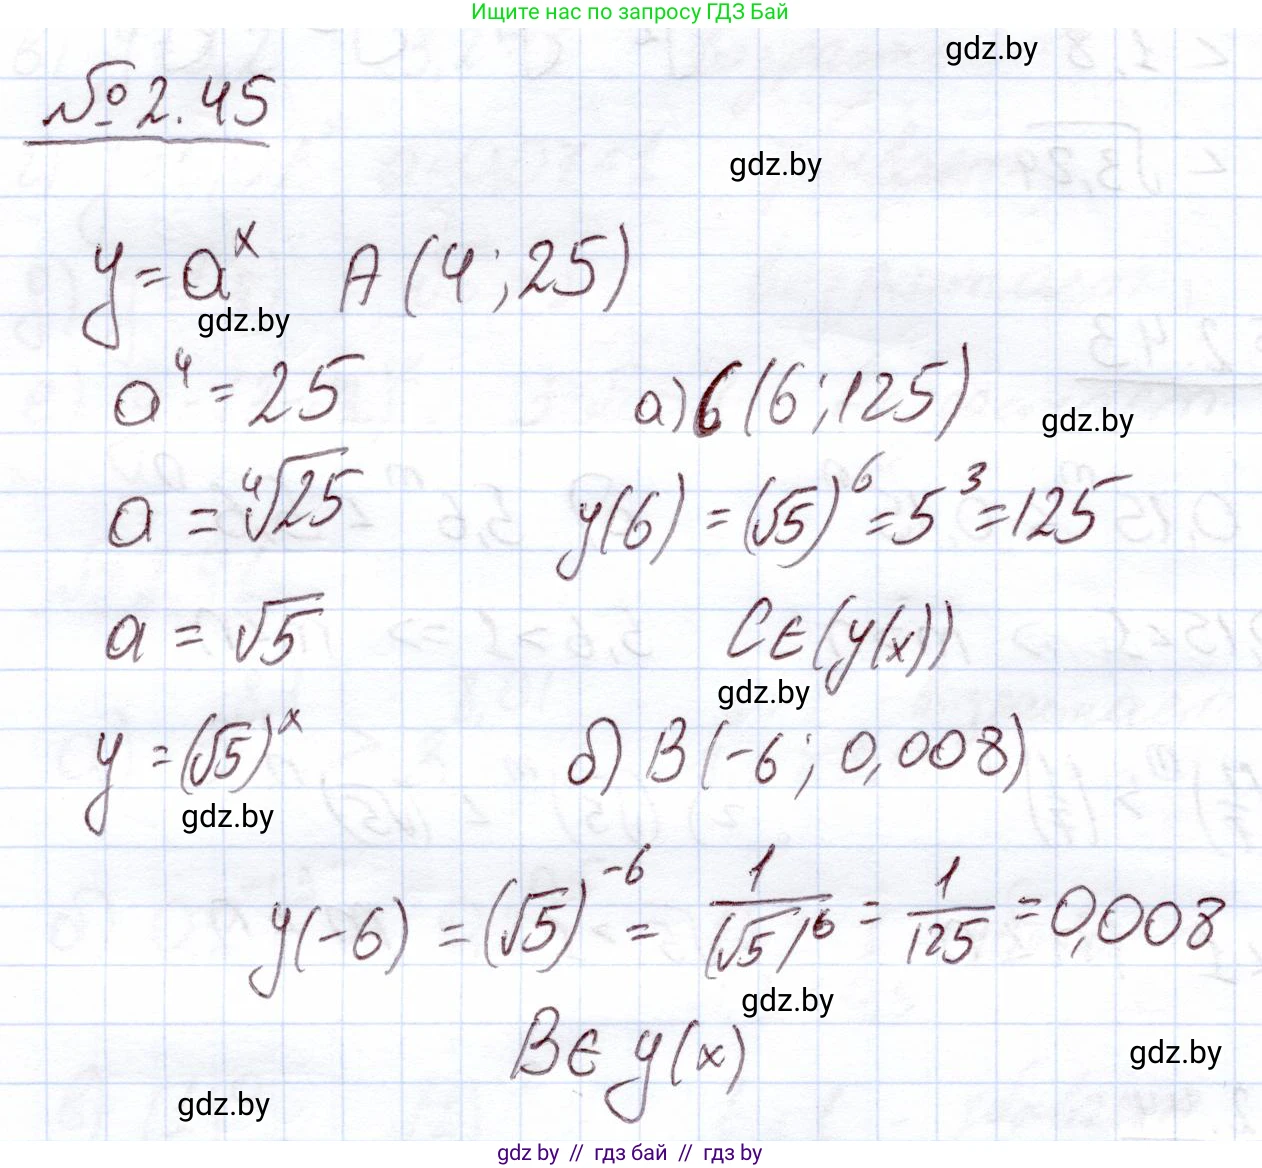 Ищите нас по запросу ГДЗ Бай
gdz.by
№ 2.45
gdz.by
y = aˣ A (4 ; 25)
gdz.by
a⁴ = 25 а) б (6 ; 125)
gdz.by
a = ⁴√25 y(6) = (√5)⁶ = 5³ = 125
a = √5 C ∈ (y(x))
gdz.by
y = (√5)ˣ б) B (-6 ; 0,008)
gdz.by
y(-6) = (√5)⁻⁶ = 1/(√5)⁶ = 1/125 = 0,008
gdz.by
B ∈ y(x)
gdz.by
gdz.by
gdz.by // гдз бай // гдз by